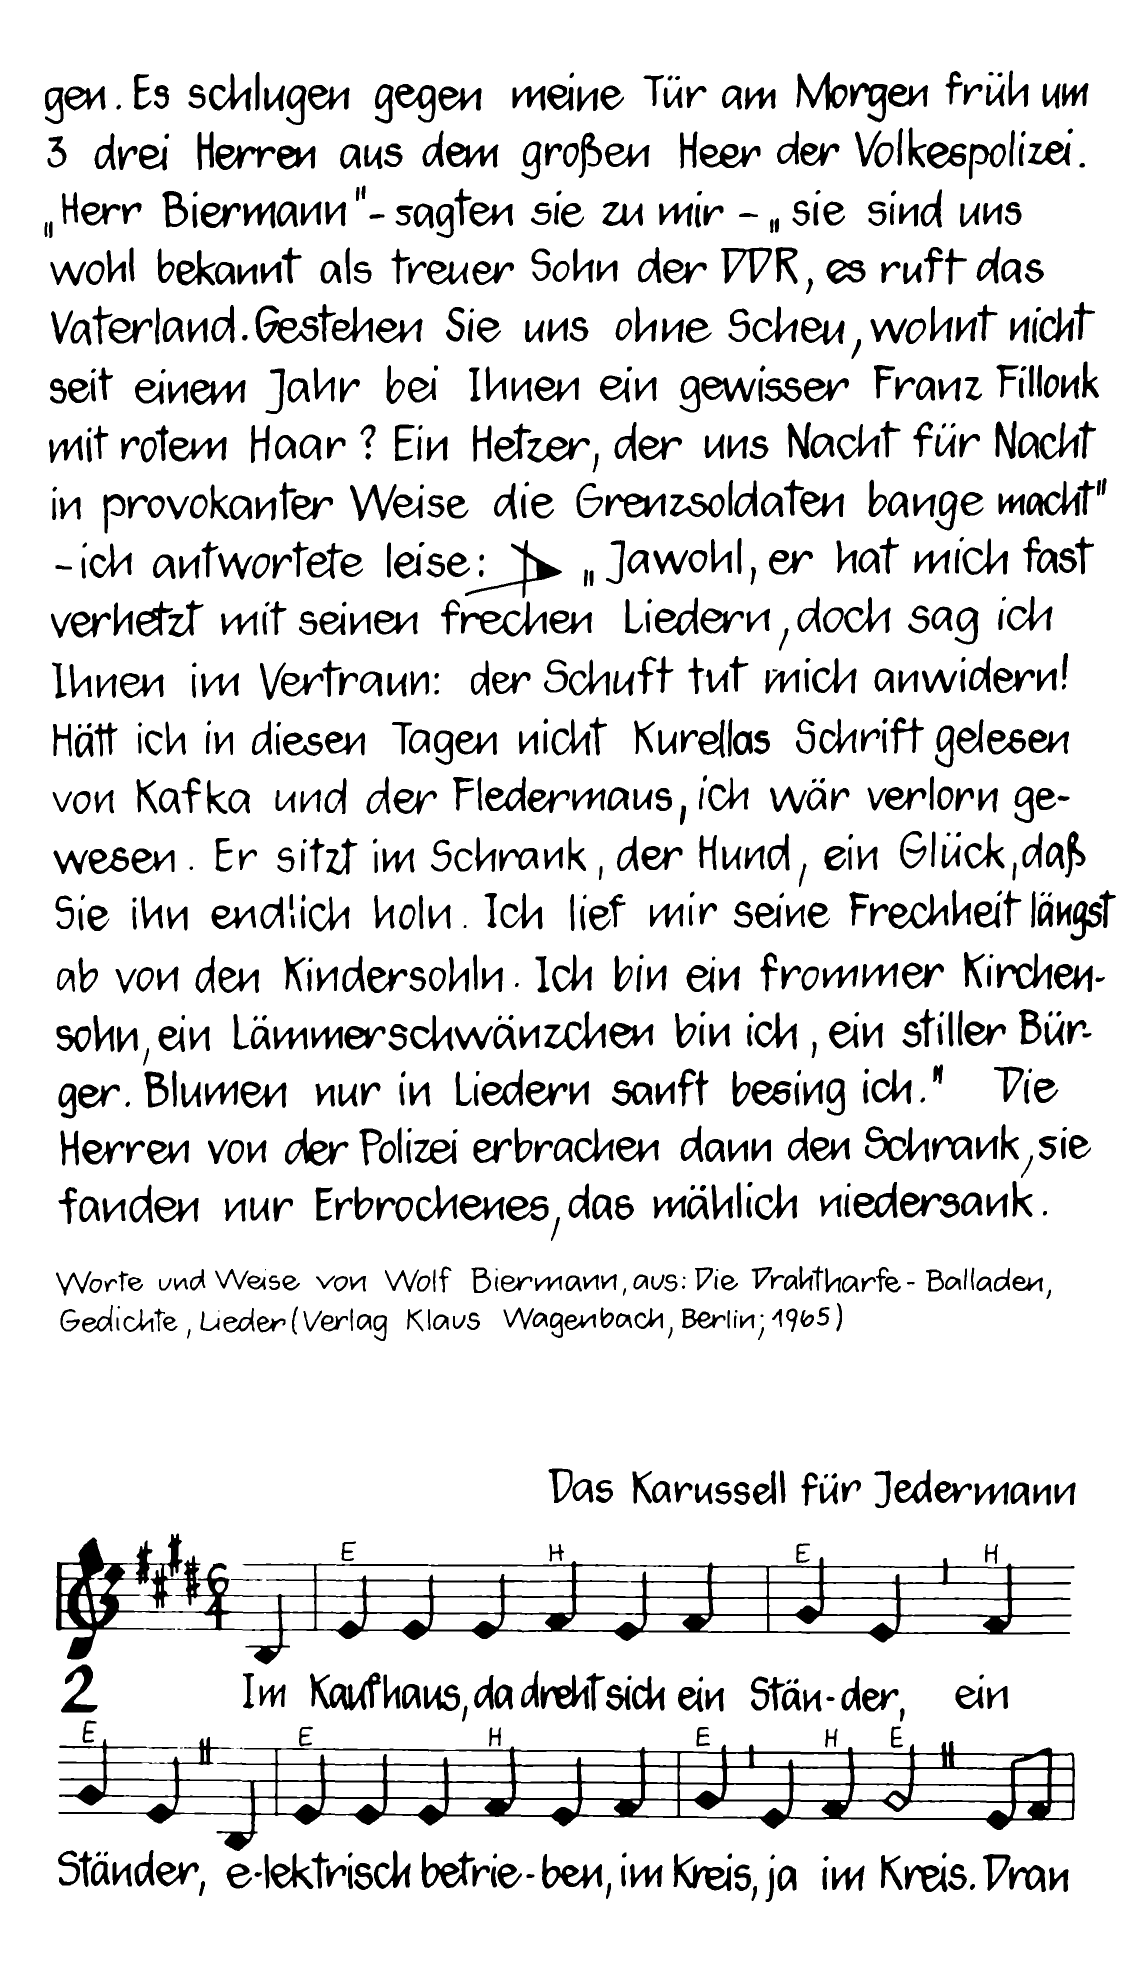 gen. Es schlugen gegen meine Tür am Morgen früh um
3 drei Herren aus dem großen Heer der Volkespolizei.
„Herr Biermann" - sagten sie zu mir - „sie sind uns
wohl bekannt als treuer Sohn der DDR, es ruft das
Vaterland. Gestehen Sie uns ohne Scheu, wohnt nicht
seit einem Jahr bei Ihnen ein gewisser Franz Fillonk
mit rotem Haar? Ein Hetzer, der uns Nacht für Nacht
in provokanter Weise die Grenzsoldaten bange macht"
- ich antwortete leise: „Jawohl, er hat mich fast
verhetzt mit seinen frechen Liedern, doch sag ich
Ihnen im Vertraun: der Schuft tut mich anwidern!
Hätt ich in diesen Tagen nicht Kurellas Schrift gelesen
von Kafka und der Fledermaus, ich wär verlorn ge-
wesen. Er sitzt im Schrank, der Hund, ein Glück, daß
Sie ihn endlich holn. Ich lief mir seine Frechheit längst
ab von den Kindersohln. Ich bin ein frommer Kirchen-
sohn, ein Lämmerschwänzchen bin ich, ein stiller Bür-
ger. Blumen nur in Liedern sanft besing ich." Die
Herren von der Polizei erbrachen dann den Schrank, sie
fanden nur Erbrochenes, das mählich niedersank.
Worte und Weise von Wolf Biermann, aus: Die Drahtharfe - Balladen,
Gedichte, Lieder (Verlag Klaus Wagenbach, Berlin; 1965)
Das Karussell für Jedermann
E H E H
6
4
2 Im Kaufhaus, da dreht sich ein Stän-der, ein
E E H E H E
Ständer, e-lektrisch betrie-ben, im Kreis, ja im Kreis. Dran